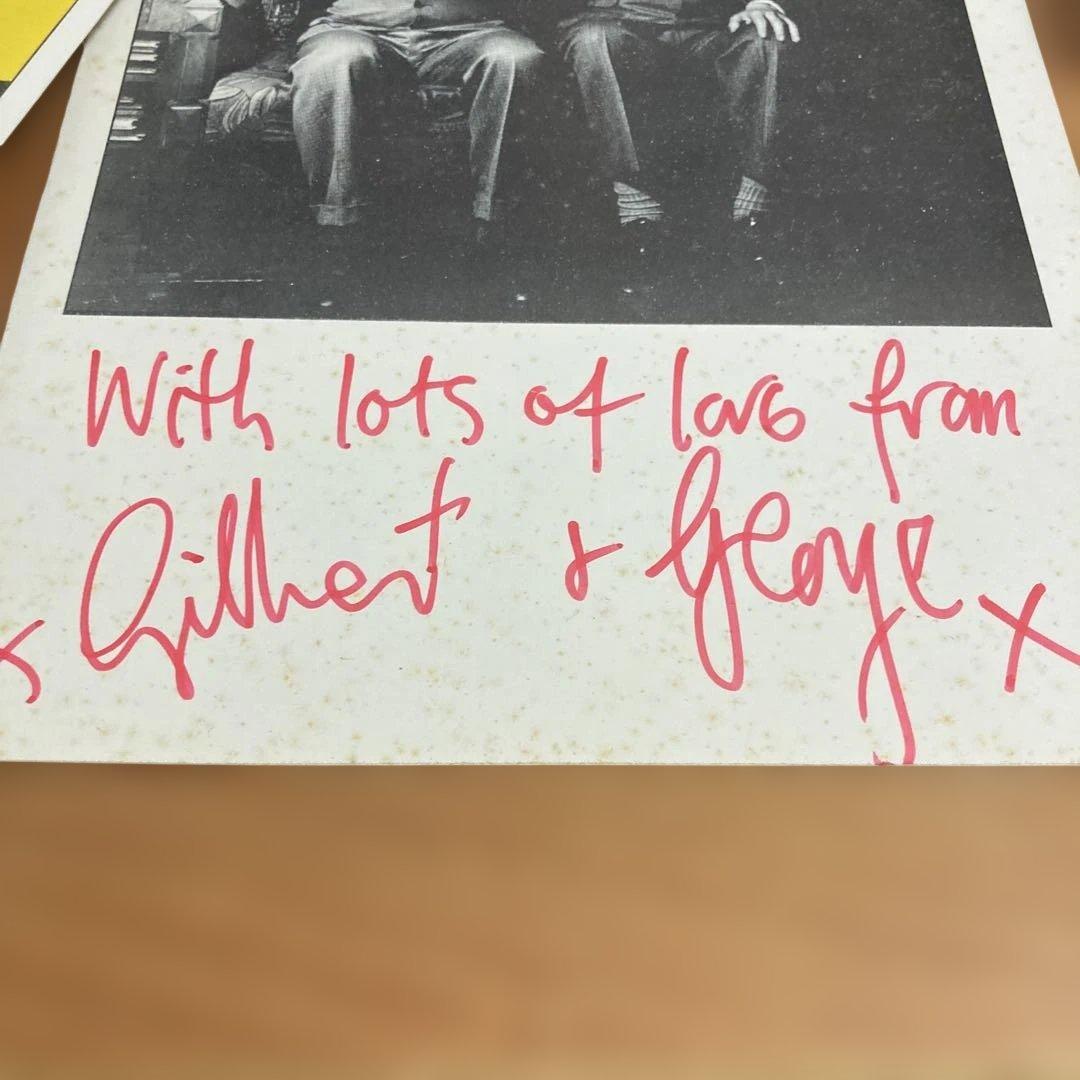 With lots of love from
x Gilbert & George x